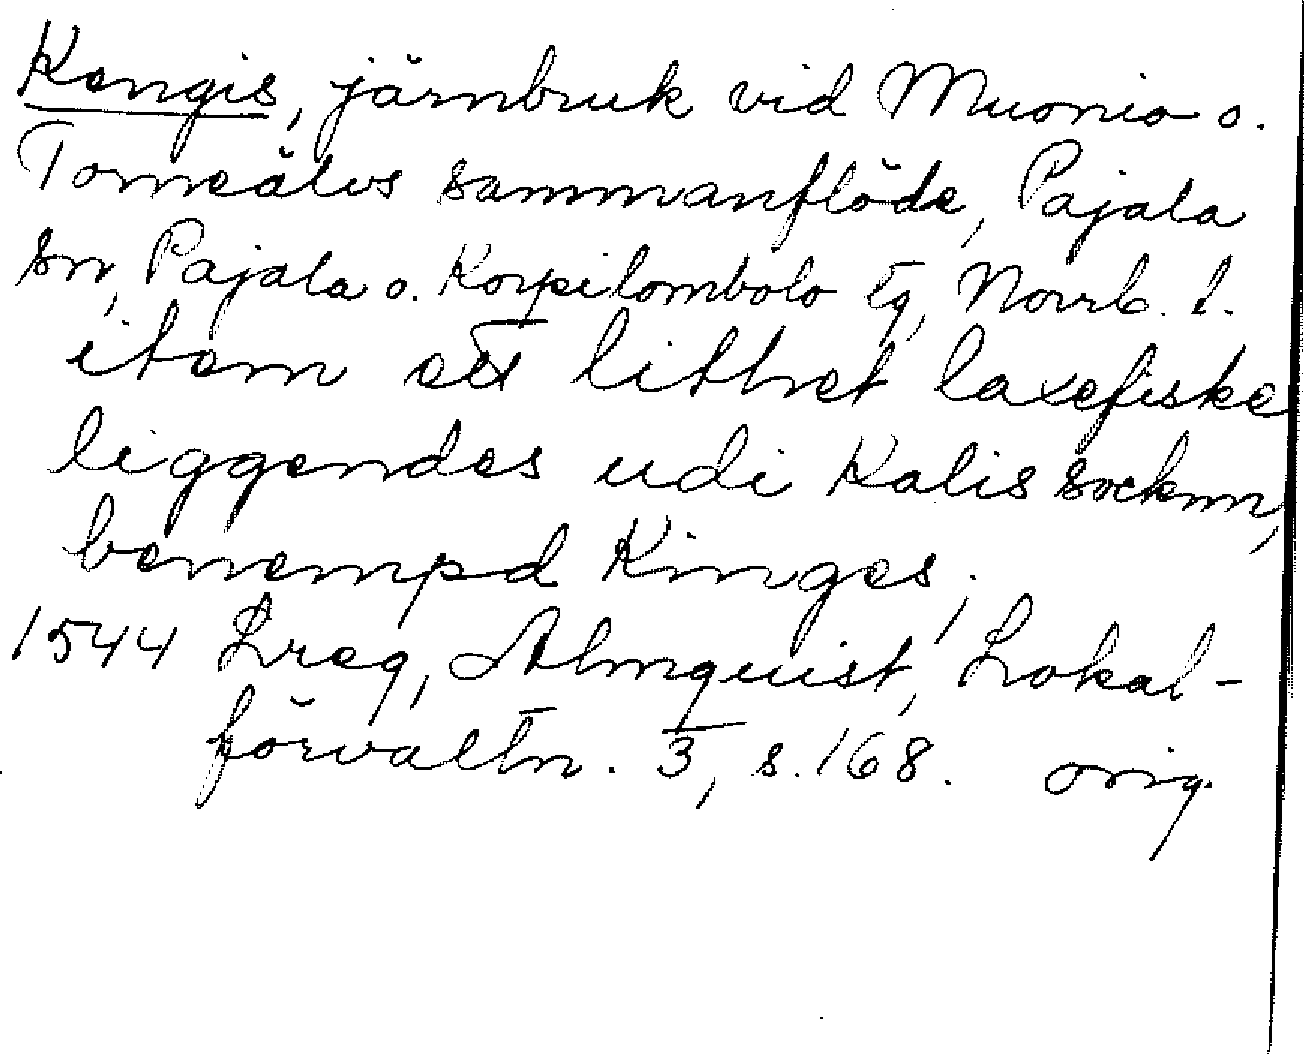 Kengis, järnbruk vid Muonio o.
Torneälvs sammanflöde, Pajala
sn, Pajala o. Korpilombolo tg, Norrb. l.
item ett lithet laxefiske
liggendes udi Kalis socknn,
benempd Kinges,
1544 Lreg, Almquist, Lokal-
förvaltn. 3, s. 168. orig.